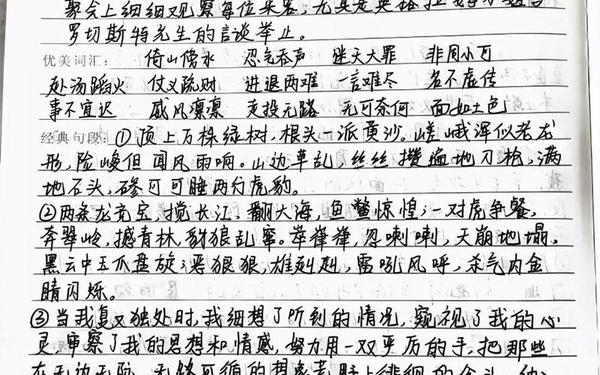 聚会上细细观察每位来客，尤其是英格拉姆小姐
罗切斯特先生的言谈举止。
优美词汇： 倚山傍水 忍气吞声 迷天大罪 非同小可
赴汤蹈火 仗义疏财 进退两难 一言难尽 名不虚传
事不宜迟 威风凛凛 走投无路 无可奈何 面如土色
经典句段：①顶上万株绿树，根头一派黄沙。嵯峨浑似老龙
形，险峻但闻风雨响。山边草乱，丝丝攒遍地刀枪，满
地石头，碜可可睡两行虎豹。
②两条龙竞宝，搅长江，翻大海，鱼鳖惊惶；一对虎争餐，
奔翠岭，撼青林，豺狼乱窜。崒嵂嵂，忽喇喇，天崩地塌。
黑云中玉爪盘旋；恶狠狠，雄赳赳，雷吼风呼，杀气内金
睛闪烁。
③当我复又独处时，我细想了听到的情况，窥视了我的心
灵，审察了我的思想和情感，努力用一双严厉的手，把那些
在无边无际、无路可循的想象